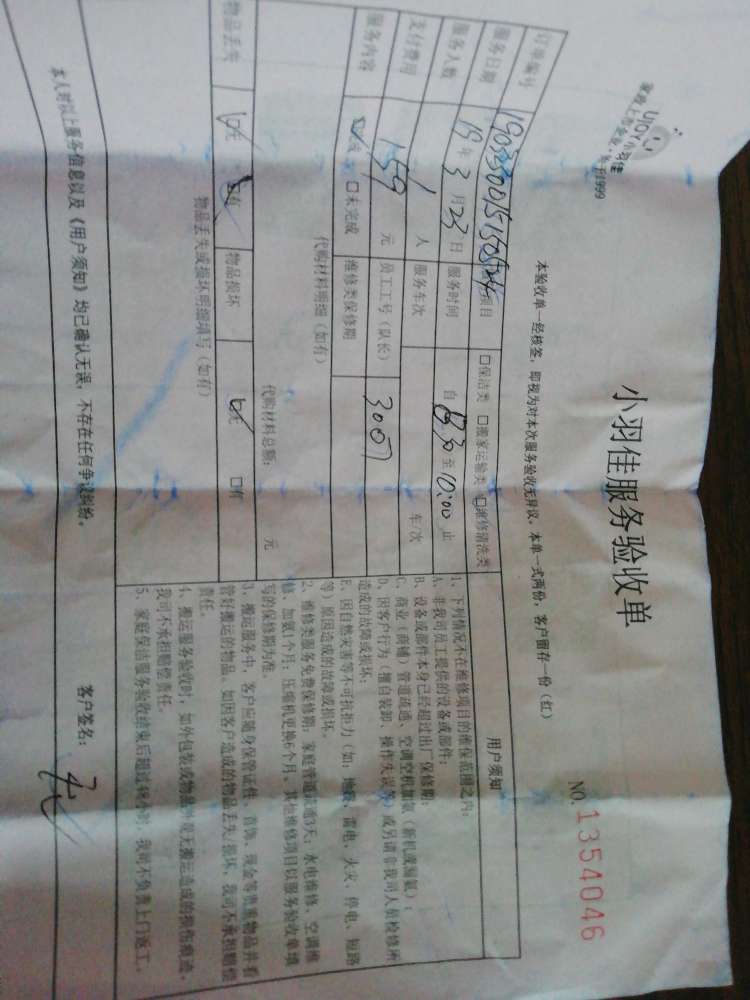 小羽佳
家政上市企业·始于1999
小羽佳服务验收单
NO. 1354046
本验收单一经核签，即视为对本次服务验收无异议。本单一式两份，客户留存一份（红）
订单编号 项目 □保洁类 □搬家运输类 □维修清洗类
服务日期 19年3月23日 服务时间 自 8:30 至 10:00 止
服务人数 1 人 服务车次 车/次
支付费用 159 元 员工工号（队长） 30007
服务内容 □未完成 维修类保修期
代购材料明细（如有）
代购材料总额： 元
物品丢失 □无 □有 物品损坏 □无 □有
物品丢失或损坏明细填写（如有）
用户须知
1、下列情况不在维修项目的维保范围之内：
A、非我司员工提供的设备或部件；
B、设备或部件本身已经超过出厂保修期；
C、商业（商铺）管道疏通、空调空机加氨（新机或漏氨）；
D、因客户行为（擅自装卸、操作失误等）或另请非我司人员检修所
造成的故障或损坏；
E、因自然灾害等不可抗拒力（如：地震、雷电、火灾、停电、短路
等）原因造成的故障或损坏。
2、维修类服务免费保修期：家庭管道疏通7天；水电维修、空调维
修、加氨1个月；压缩机更换6个月，其他维修项目以服务验收单填
写的保修期为准。
3、搬运服务中，客户应随身保管证件、首饰、现金等贵重物品并看
管好搬运的物品，如因客户造成的物品丢失/损坏，我司不承担赔偿
责任。
4、搬运服务验收时，如外包装或物品外观无搬运造成的损伤痕迹，
我司不承担赔偿责任。
5、家庭保洁服务验收结束后超过48小时，我司不负责上门返工。
本人对以上服务信息以及《用户须知》均已确认无误，不存在任何争议纠纷。 客户签名：